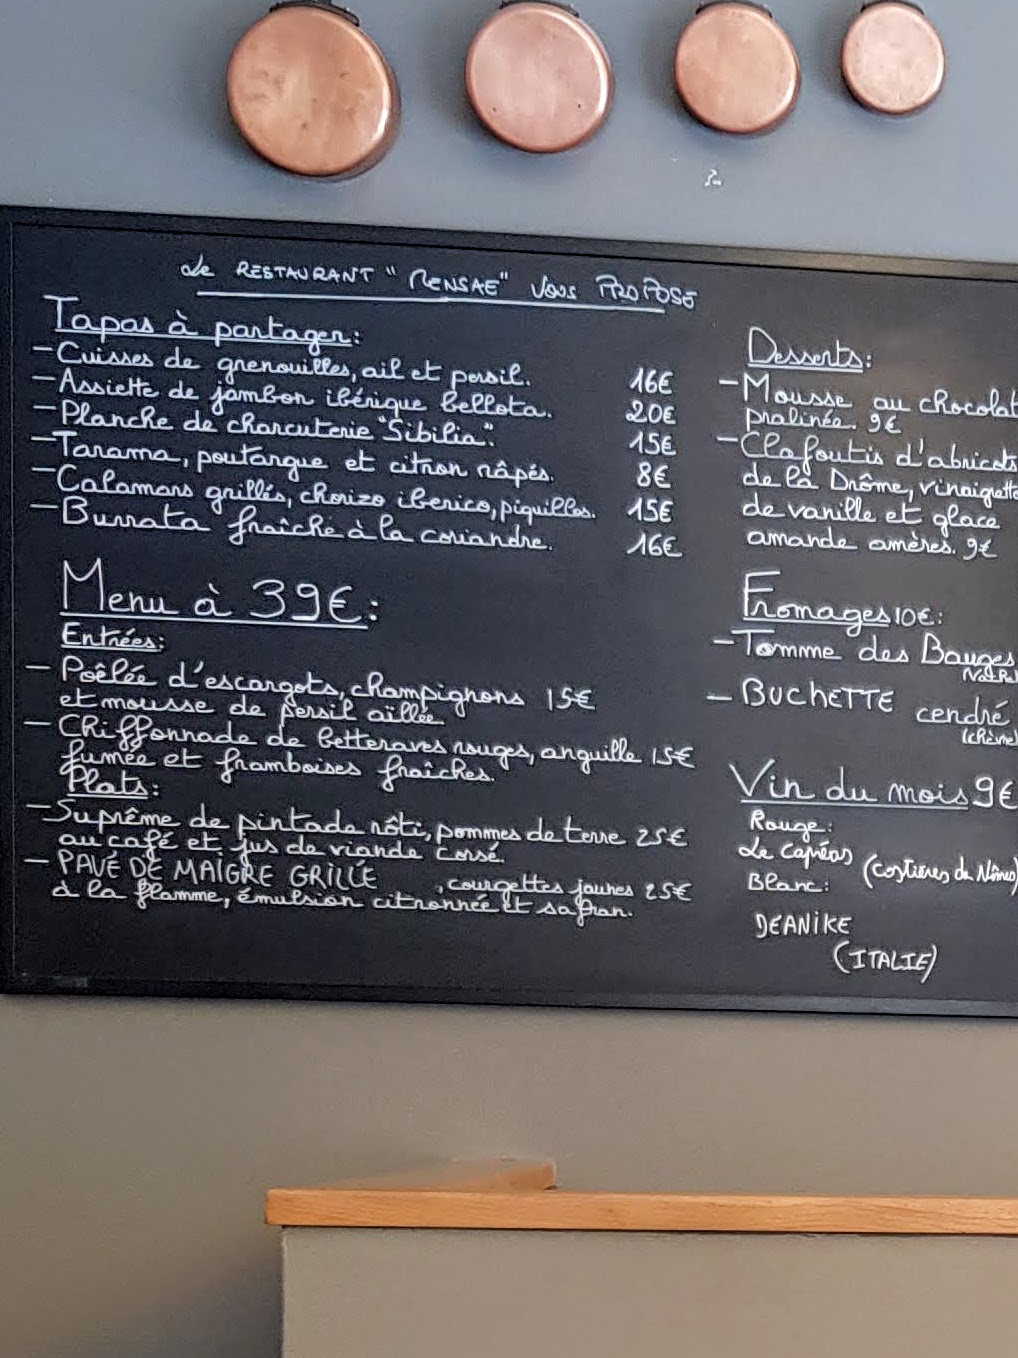 Le RESTAURANT "MENSAE" VOUS PROPOSE
Tapas à partager:
-Cuisses de grenouilles, ail et persil. 16€
-Assiette de jambon ibérique bellota. 20€
-Planche de charcuterie "Sibilia". 15€
-Tarama, poutargue et citron râpés. 8€
-Calamars grillés, chorizo iberico, piquillos. 15€
-Burrata fraîche à la coriandre. 16€
Menu à 39€:
Entrées:
- Poêlée d'escargots, champignons 15€
et mousse de persil aïllée
- Chiffonnade de betteraves rouges, anguille 15€
fumée et framboises fraîches.
Plats:
-Suprême de pintade rôti, pommes de terre 25€
au café et jus de viande corsé.
- PAVÉ DE MAIGRE GRILLÉ , courgettes jaunes 25€
à la flamme, émulsion citronnée et safran.
Desserts:
-Mousse au chocolat
pralinée. 9€
-Clafoutis d'abricots
de la Drôme, vinaigrette
de vanille et glace
amande amères. 9€
Fromages 10€:
-Tomme des Bauges
- BUCHETTE cendré
(chèvre)
Vin du mois 9€
Rouge:
Le Capéas (Costières de Nîmes)
Blanc:
DEANIKE
(ITALIE)